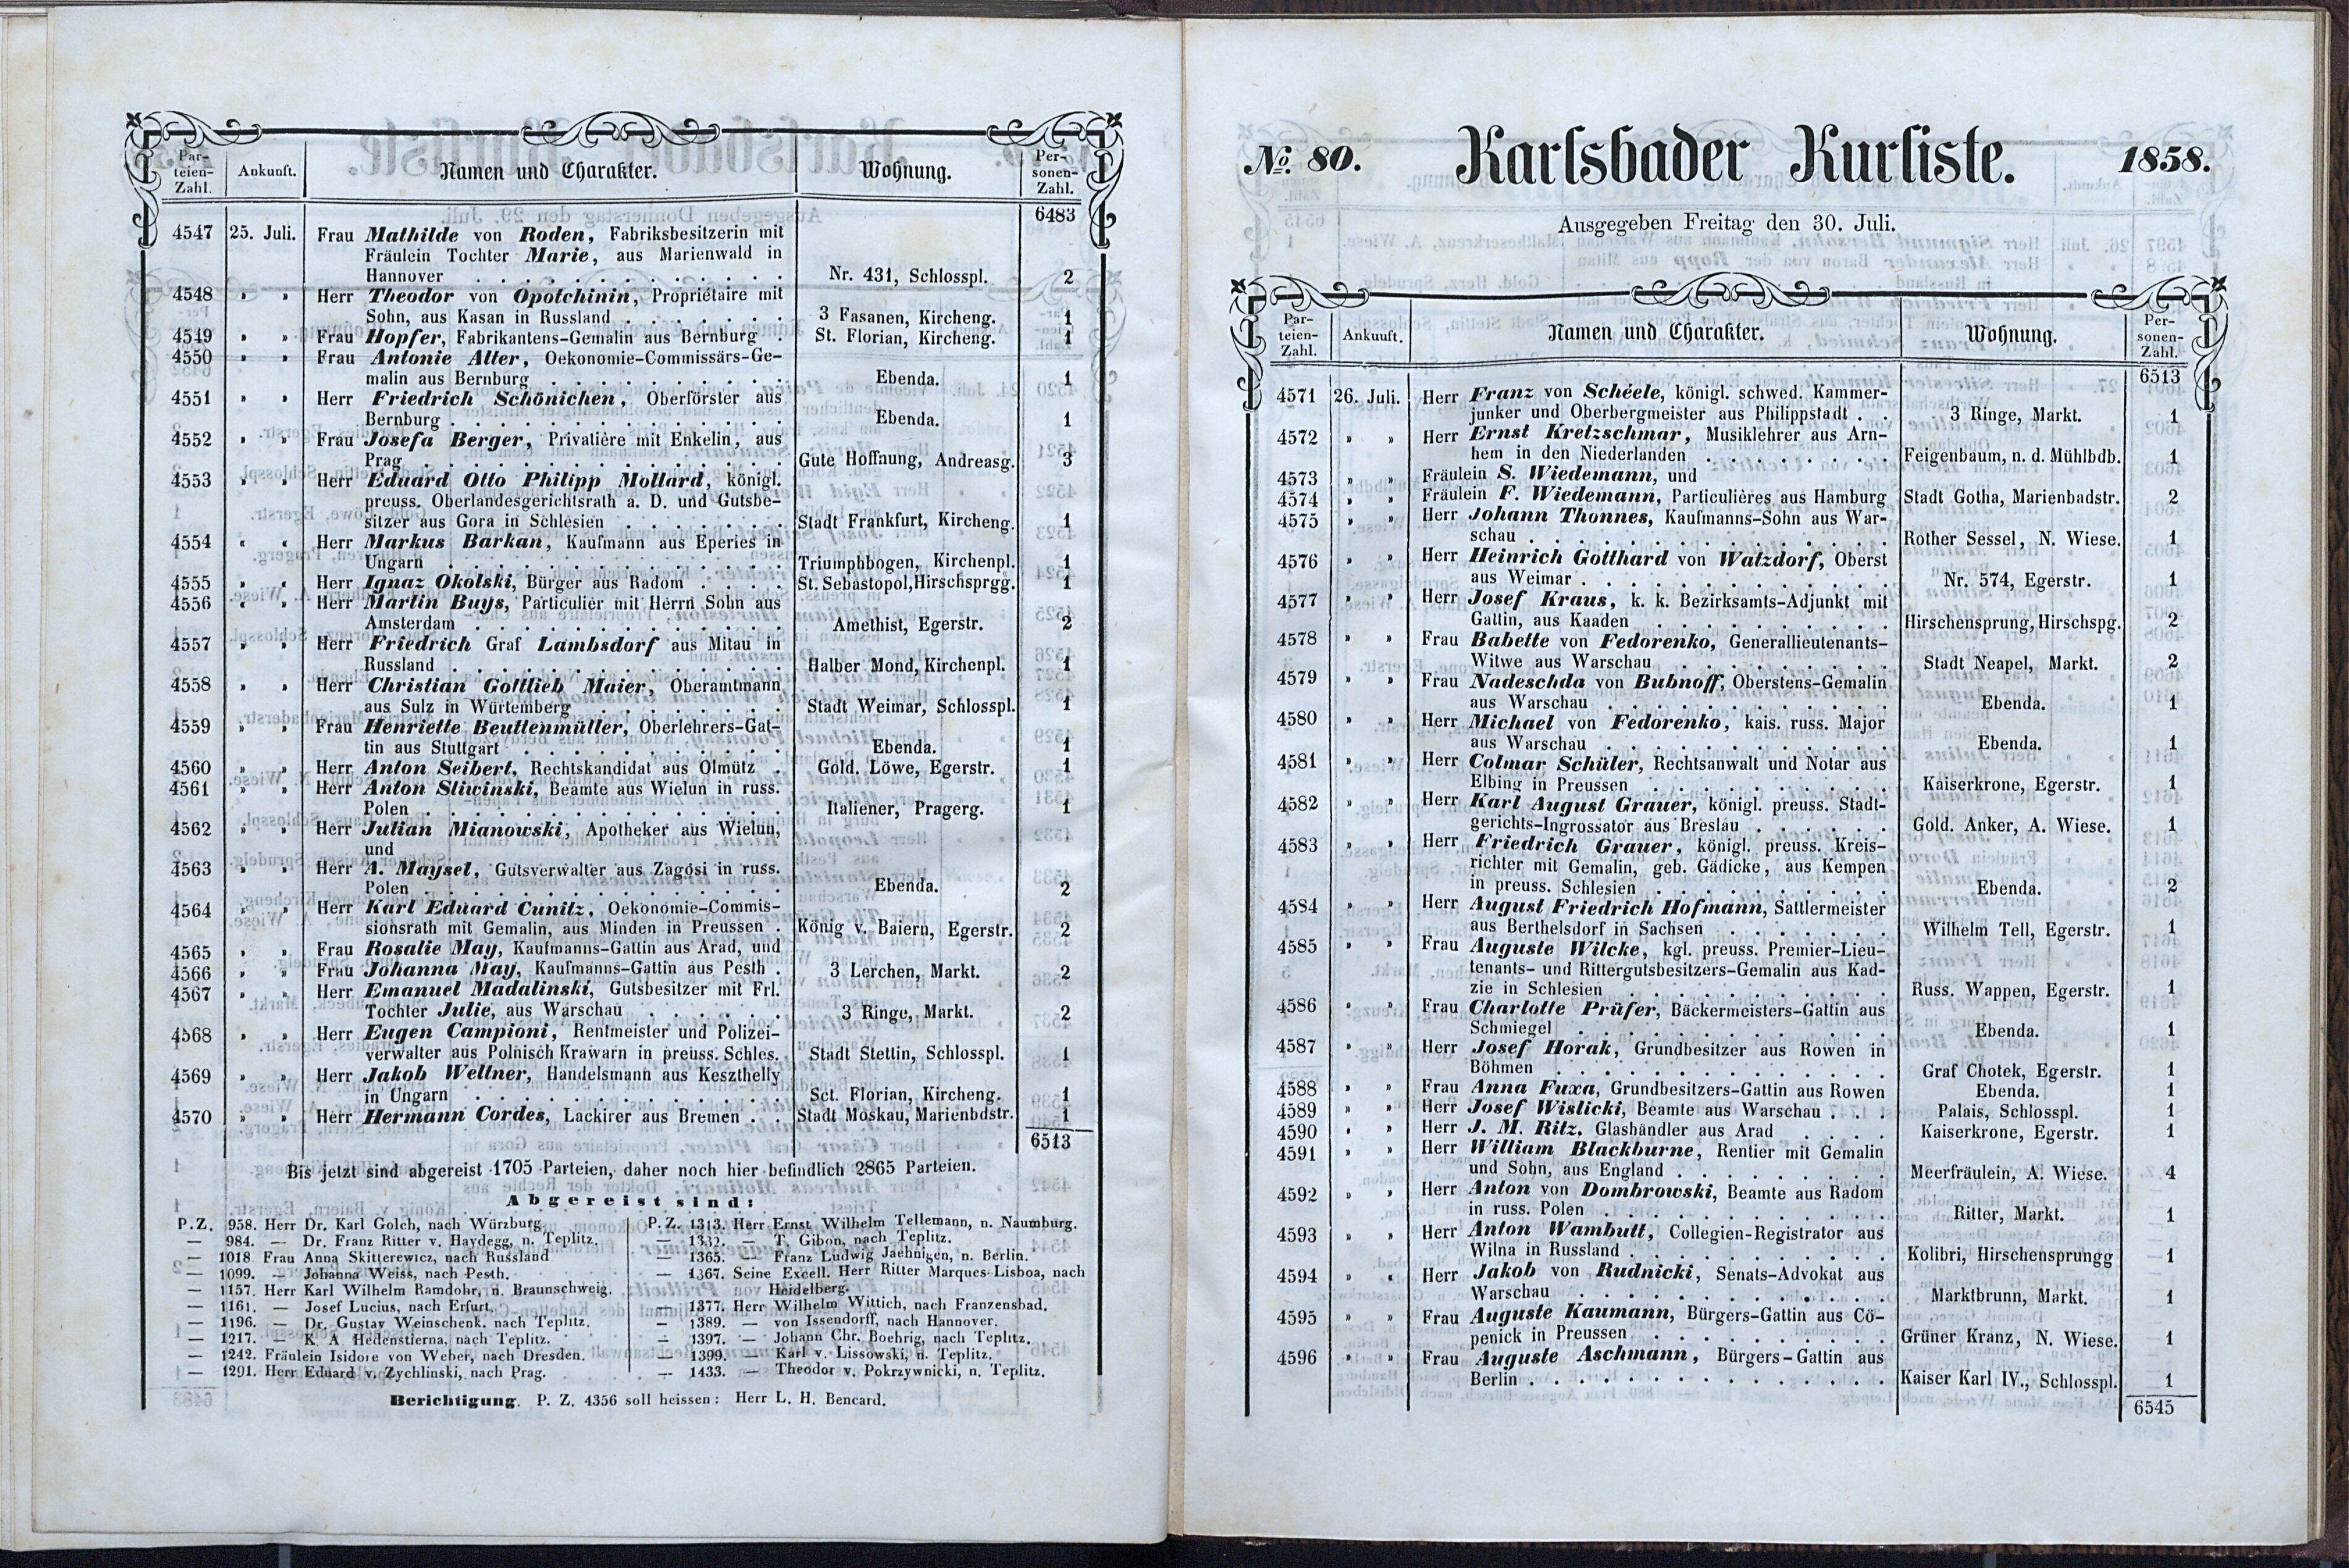 Par-
teien-
Zahl.
Ankunft.
Namen und Charakter.
Wohnung.
Per-
sonen-
Zahl.
6483
4547 25. Juli. Frau Mathilde von Roden, Fabriksbesitzerin mit
Fräulein Tochter Marie, aus Marienwald in
Hannover . . . . . . . . . . . Nr. 431, Schlosspl. 2
4548 » » Herr Theodor von Opotchinin, Propriétaire mit
Sohn, aus Kasan in Russland . . . . . . . 3 Fasanen, Kircheng. 1
4549 » » Frau Hopfer, Fabrikantens-Gemalin aus Bernburg . St. Florian, Kircheng. 1
4550 » » Frau Antonie Alter, Oekonomie-Commissärs-Ge-
malin aus Bernburg . . . . . . . . . . Ebenda. 1
4551 » » Herr Friedrich Schönichen, Oberförster aus
Bernburg . . . . . . . . . . . . Ebenda. 1
4552 » » Frau Josefa Berger, Privatière mit Enkelin, aus
Prag . . . . . . . . . . . . . Gute Hoffnung, Andreasg. 3
4553 » » Herr Eduard Otto Philipp Mollard, königl.
preuss. Oberlandesgerichtsrath a. D. und Gutsbe-
sitzer aus Gora in Schlesien . . . . . . . Stadt Frankfurt, Kircheng. 1
4554 « « Herr Markus Barkan, Kaufmann aus Eperies in
Ungarn . . . . . . . . . . . . Triumphbogen, Kirchenpl. 1
4555 » « Herr Ignaz Okolski, Bürger aus Radom . . . St. Sebastopol, Hirschsprgg. 1
4556 « » Herr Martin Buys, Particulier mit Herrn Sohn aus
Amsterdam . . . . . . . . . . . . Amethist, Egerstr. 2
4557 » » Herr Friedrich Graf Lambsdorf aus Mitau in
Russland . . . . . . . . . . . . Halber Mond, Kirchenpl. 1
4558 » » Herr Christian Gottlieb Maier, Oberamtmann
aus Sulz in Würtemberg . . . . . . . . Stadt Weimar, Schlosspl. 1
4559 » » Frau Henriette Beuttenmüller, Oberlehrers-Gat-
tin aus Stuttgart . . . . . . . . . . . Ebenda. 1
4560 » » Herr Anton Seibert, Rechtskandidat aus Olmütz . Gold. Löwe, Egerstr. 1
4561 » » Herr Anton Sliwinski, Beamte aus Wielun in russ.
Polen . . . . . . . . . . . . . Italiener, Pragerg. 1
4562 » » Herr Julian Mianowski, Apotheker aus Wielun,
und
4563 » » Herr A. Maysel, Gutsverwalter aus Zagósi in russ.
Polen . . . . . . . . . . . . . Ebenda. 2
4564 » » Herr Karl Eduard Cunitz, Oekonomie-Commis-
sionsrath mit Gemalin, aus Minden in Preussen . König v. Baiern, Egerstr. 2
4565 » » Frau Rosalie May, Kaufmanns-Gattin aus Arad, und
4566 » » Frau Johanna May, Kaufmanns-Gattin aus Pesth . 3 Lerchen, Markt. 2
4567 » » Herr Emanuel Madalinski, Gutsbesitzer mit Frl.
Tochter Julie, aus Warschau . . . . . . 3 Ringe, Markt. 2
4568 » » Herr Eugen Campioni, Rentmeister und Polizei-
verwalter aus Polnisch Krawarn in preuss. Schles. Stadt Stettin, Schlosspl. 1
4569 » » Herr Jakob Weltner, Handelsmann aus Keszthelly
in Ungarn . . . . . . . . . . . . Sct. Florian, Kircheng. 1
4570 » » Herr Hermann Cordes, Lackirer aus Bremen . . Stadt Moskau, Marienbdstr. 1
6513
Bis jetzt sind abgereist 1705 Parteien, daher noch hier befindlich 2865 Parteien.
Abgereist sind:
P.Z. 958. Herr Dr. Karl Golch, nach Würzburg.
— 984. — Dr. Franz Ritter v. Haydegg, n. Teplitz.
— 1018 Frau Anna Skitterewicz, nach Russland
— 1099. — Johanna Weiss, nach Pesth.
— 1157. Herr Karl Wilhelm Ramdohr, n. Braunschweig.
— 1161. — Josef Lucius, nach Erfurt.
— 1196. — Dr. Gustav Weinschenk. nach Teplitz.
— 1217. — K. A Hedenstierna, nach Teplitz.
— 1242. Fräulein Isidore von Weber, nach Dresden.
— 1291. Herr Eduard v. Zychlinski, nach Prag.
P.Z. 1313. Herr Ernst Wilhelm Tellemann, n. Naumburg.
— 1332. — T. Gibon, nach Teplitz.
— 1365. — Franz Ludwig Jaehnigen, n. Berlin.
— 1367. Seine Excell. Herr Ritter Marques Lisboa, nach
Heidelberg.
— 1377. Herr Wilhelm Wittich, nach Franzensbad.
— 1389. — von Issendorff, nach Hannover.
— 1397. — Johann Chr. Boehrig, nach Teplitz.
— 1399. — Karl v. Lissowski, n. Teplitz.
— 1433. — Theodor v. Pokrzywnicki, n. Teplitz.
Berichtigung. P. Z. 4356 soll heissen: Herr L. H. Bencard.
No. 80. Karlsbader Kurliste. 1858.
Ausgegeben Freitag den 30. Juli.
Par-
teien-
Zahl.
Ankunft.
Namen und Charakter.
Wohnung.
Per-
sonen-
Zahl.
6513
4571 26. Juli. Herr Franz von Schéele, königl. schwed. Kammer-
junker und Oberbergmeister aus Philippstadt . . 3 Ringe, Markt. 1
4572 » » Herr Ernst Kretzschmar, Musiklehrer aus Arn-
hem in den Niederlanden . . . . . Feigenbaum, n. d. Mühlbdb. 1
4573 » » Fräulein S. Wiedemann, und
4574 » » Fräulein F. Wiedemann, Particulières aus Hamburg Stadt Gotha, Marienbadstr. 2
4575 » » Herr Johann Thonnes, Kaufmanns-Sohn aus War-
schau . . . . . . . . . . . . Rother Sessel, N. Wiese. 1
4576 » » Herr Heinrich Gotthard von Watzdorf, Oberst
aus Weimar . . . . . . . . . . . Nr. 574, Egerstr. 1
4577 » » Herr Josef Kraus, k. k. Bezirksamts-Adjunkt mit
Gattin, aus Kaaden . . . . . . . . . Hirschensprung, Hirschspg. 2
4578 » » Frau Babette von Fedorenko, Generallieutenants-
Witwe aus Warschau . . . . . . . . Stadt Neapel, Markt. 2
4579 » » Frau Nadeschda von Bubnoff, Oberstens-Gemalin
aus Warschau . . . . . . . . . . . Ebenda. 1
4580 » » Herr Michael von Fedorenko, kais. russ. Major
aus Warschau . . . . . . . . . . . Ebenda. 1
4581 » » Herr Colmar Schüler, Rechtsanwalt und Notar aus
Elbing in Preussen . . . . . . . . . Kaiserkrone, Egerstr. 1
4582 » » Herr Karl August Grauer, königl. preuss. Stadt-
gerichts-Ingrossator aus Breslau . . . . . Gold. Anker, A. Wiese. 1
4583 » » Herr Friedrich Grauer, königl. preuss. Kreis-
richter mit Gemalin, geb. Gädicke, aus Kempen
in preuss. Schlesien . . . . . . . . . Ebenda. 2
4584 » » Herr August Friedrich Hofmann, Sattlermeister
aus Berthelsdorf in Sachsen . . . . . . . Wilhelm Tell, Egerstr. 1
4585 » » Frau Auguste Wilcke, kgl. preuss. Premier-Lieu-
tenants- und Rittergutsbesitzers-Gemalin aus Kad-
zie in Schlesien . . . . . . . . . . Russ. Wappen, Egerstr. 1
4586 » » Frau Charlotte Prüfer, Bäckermeisters-Gattin aus
Schmiegel . . . . . . . . . . . . Ebenda. 1
4587 » » Herr Josef Horak, Grundbesitzer aus Rowen in
Böhmen . . . . . . . . . . . . Graf Chotek, Egerstr. 1
4588 » » Frau Anna Fuxa, Grundbesitzers-Gattin aus Rowen Ebenda. 1
4589 » » Herr Josef Wislicki, Beamte aus Warschau . . . Palais, Schlosspl. 1
4590 » » Herr J. M. Ritz, Glashändler aus Arad . . . . Kaiserkrone, Egerstr. 1
4591 » » Herr William Blackburne, Rentier mit Gemalin
und Sohn, aus England . . . . . . . . Meerfräulein, A. Wiese. 4
4592 » » Herr Anton von Dombrowski, Beamte aus Radom
in russ. Polen . . . . . . . . . . . Ritter, Markt. 1
4593 » » Herr Anton Wambutt, Collegien-Registrator aus
Wilna in Russland . . . . . . . . . . Kolibri, Hirschensprungg 1
4594 » « Herr Jakob von Rudnicki, Senats-Advokat aus
Warschau . . . . . . . . . . . . Marktbrunn, Markt. 1
4595 » » Frau Auguste Kaumann, Bürgers-Gattin aus Cö-
penick in Preussen . . . . . . . . . Grüner Kranz, N. Wiese. 1
4596 » » Frau Auguste Aschmann, Bürgers-Gattin aus
Berlin . . . . . . . . . . . . . Kaiser Karl IV., Schlosspl. 1
6545